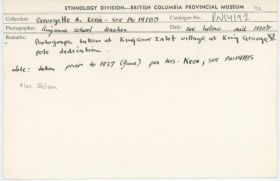 ETHNOLOGY DIVISION—BRITISH COLUMBIA PROVINCIAL MUSEUM
Collector: Georgette A. Keea - see PN 14185 Catalogue No.: PN 14192
Photographer: Kingcome school teacher Date: see below mid 1930's
Remarks: Photograph taken at Kingcome Inlet village at King George V
pole dedication.
date: taken prior to 1937 (June) per Mrs. Keea, see PN14185
Alec Nelson